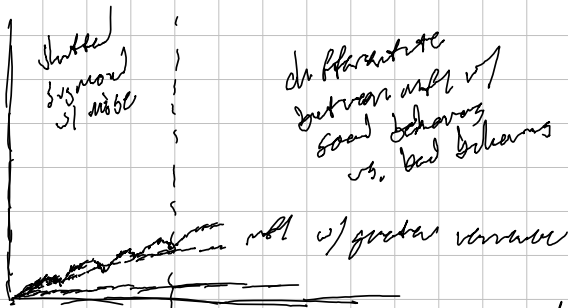 shifted
sigmoid
w/ noise
differentiate
between w/
good behaviors
vs. bad behaviors
w/ greater variance